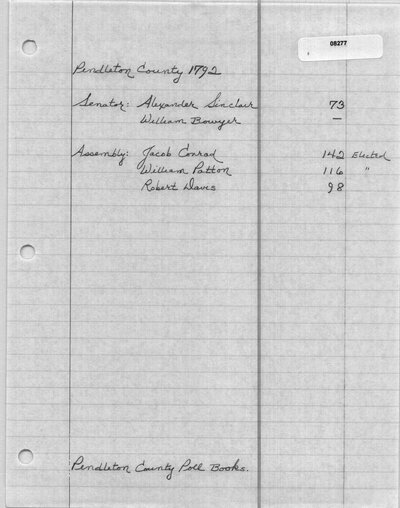 08277
Pendleton County 1792
Senator: Alexander Sinclair 73
William Bowyer —
Assembly: Jacob Conrad 142 Elected
William Patton 116 "
Robert Davis 98
Pendleton County Poll Books.